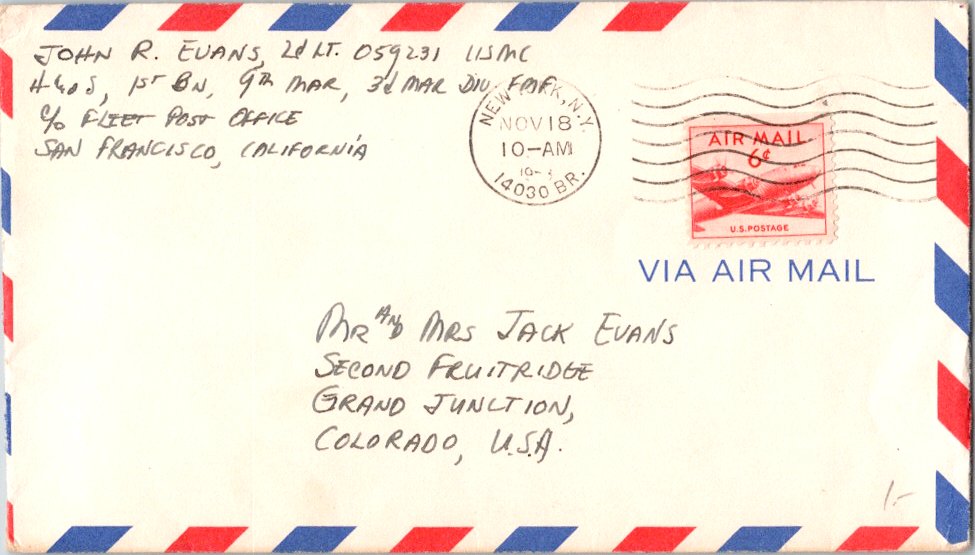 JOHN R. EVANS, 2d LT. 059231 USMC
H&S, 1ST BN, 9TH MAR, 3d MAR DIV, FMF,
c/o FLEET POST OFFICE
SAN FRANCISCO, CALIFORNIA
NEW YORK, N.Y.
NOV 18
10-AM
14030 BR.
AIR MAIL
6¢
U.S. POSTAGE
VIA AIR MAIL
MR AND MRS JACK EVANS
SECOND FRUITRIDGE
GRAND JUNCTION,
COLORADO, U.S.A.
1.-